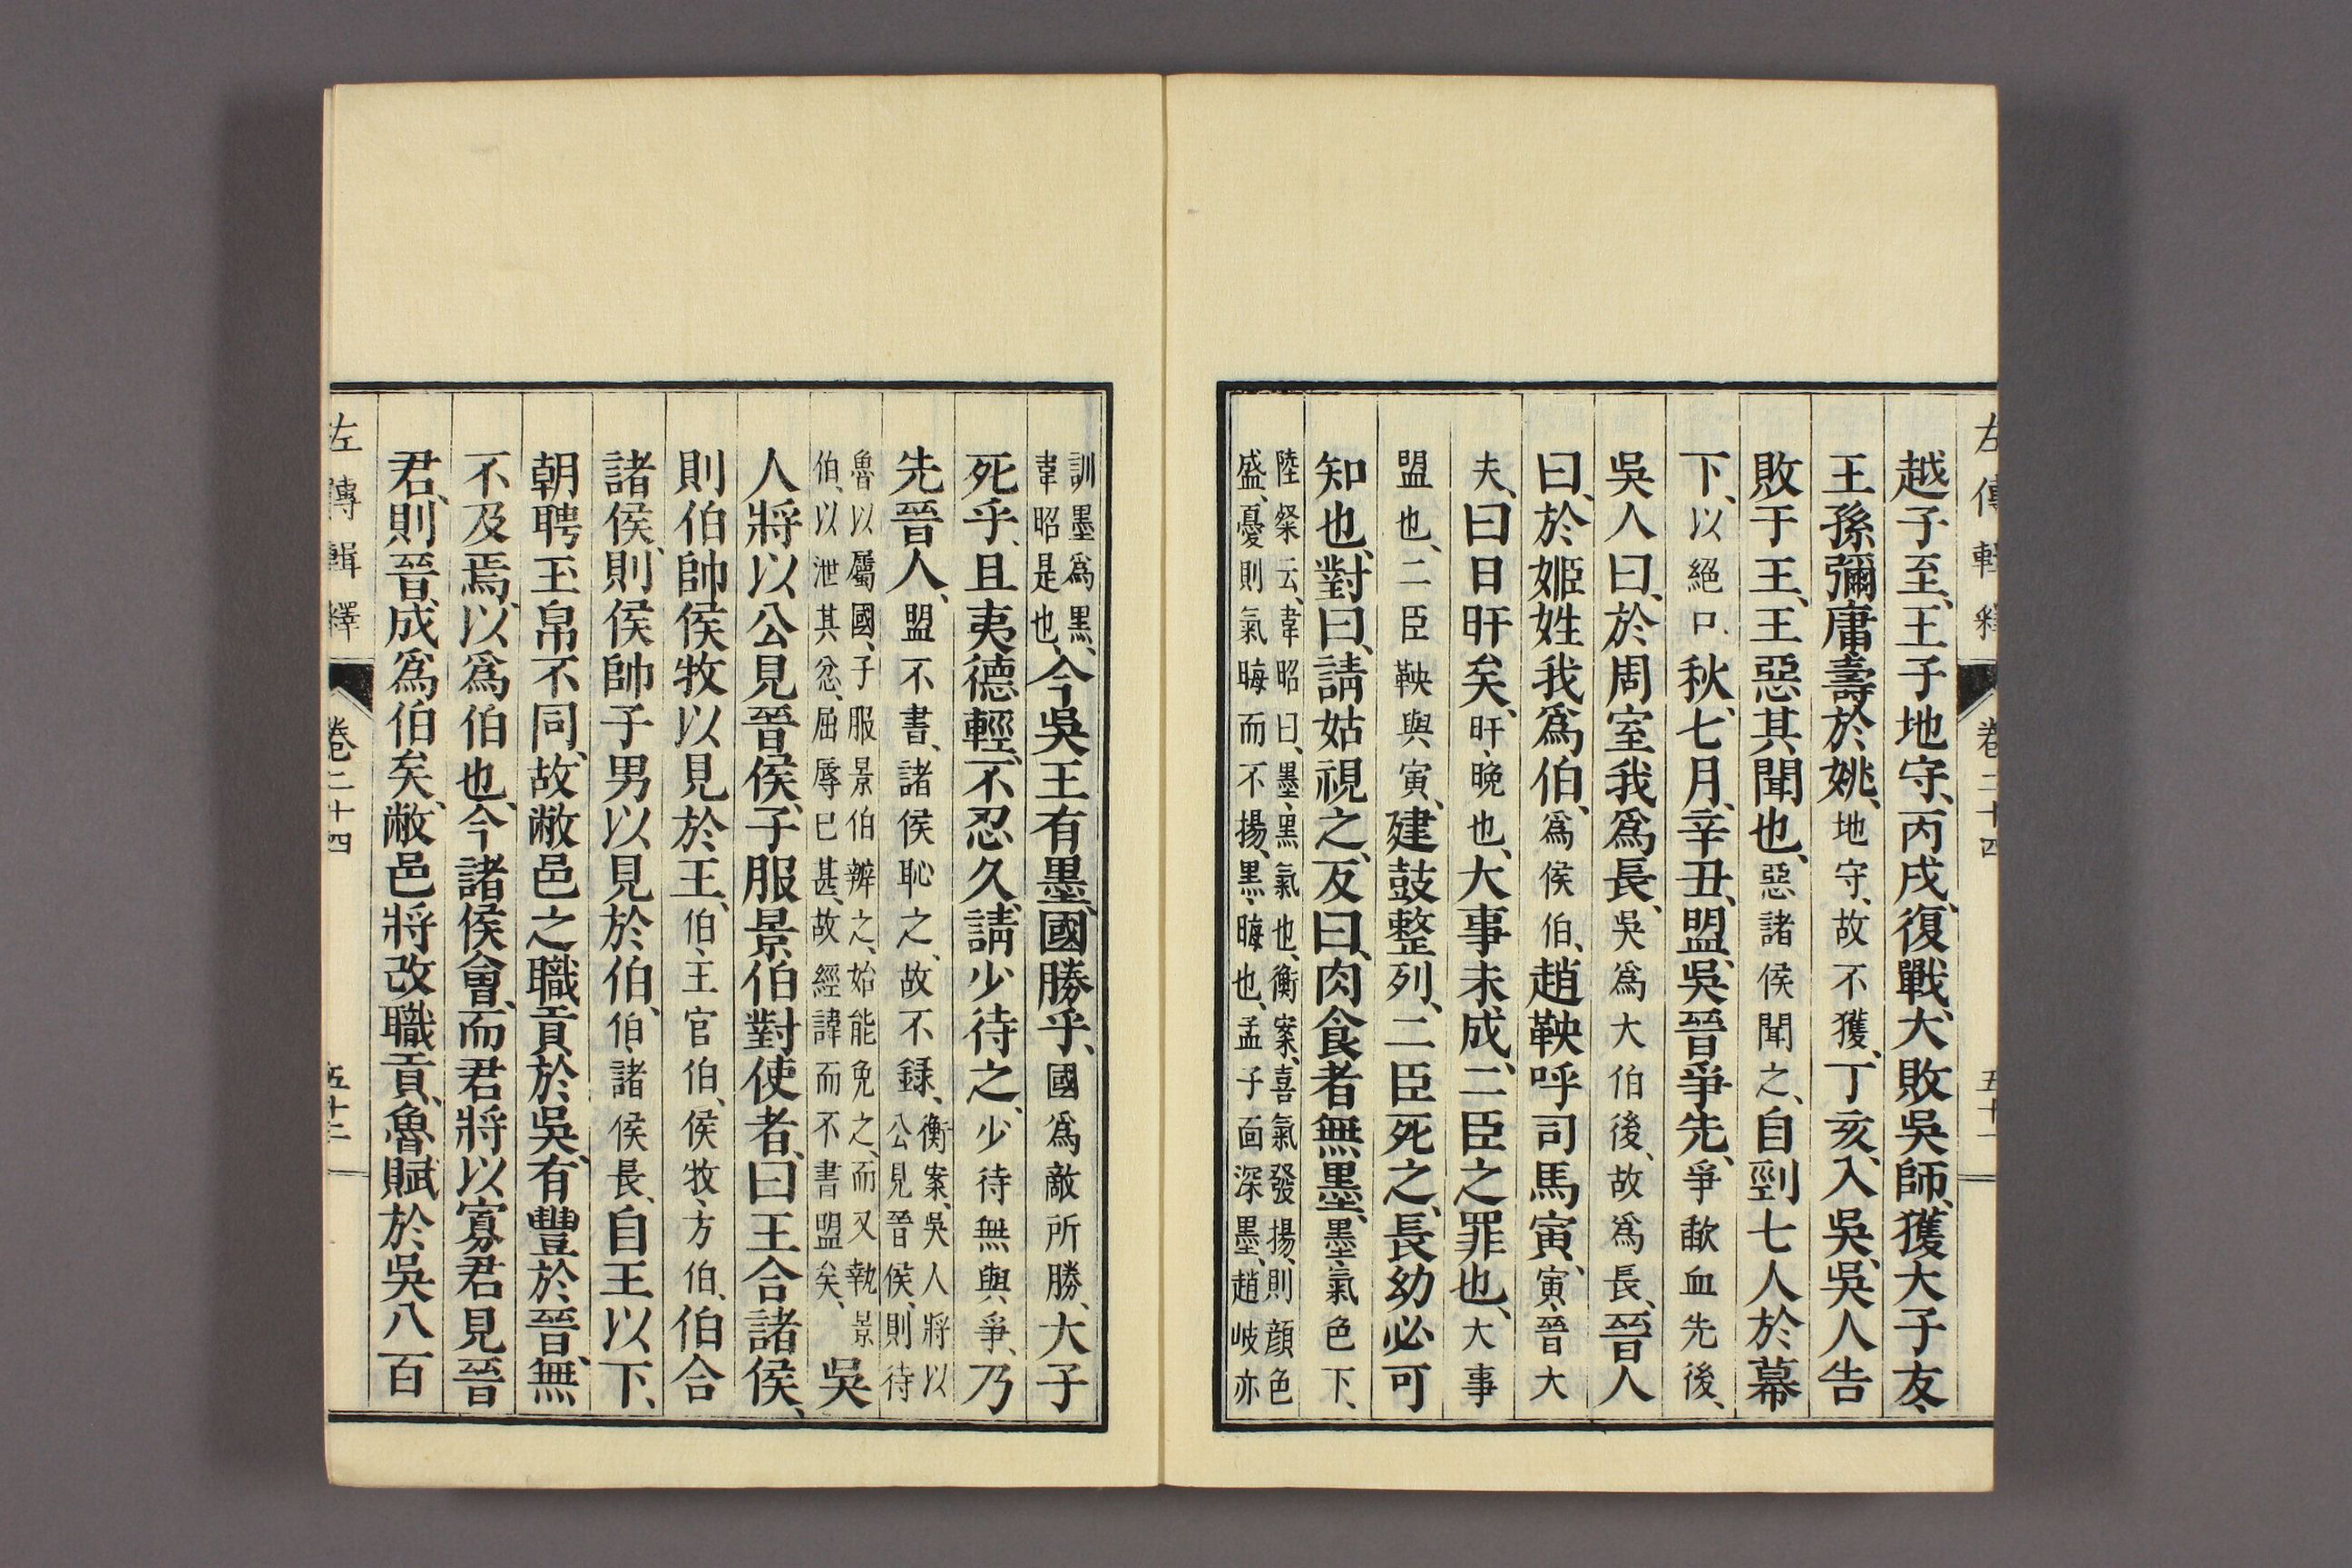 左傳輯釋 卷二十四 五十一
越子至、王子地守、丙戌、復戰、大敗吳師、獲大子友、
王孫彌庸壽於姚、地守、故不獲、丁亥、入吳、吳人告
敗于王、王惡其聞也、惡諸侯聞之、自剄七人於幕
下、以絕口、秋、七月、辛丑、盟、吳晉爭先、爭歃血先後、
吳人曰、於周室我爲長、吳爲大伯後、故爲長、晉人
曰、於姬姓我爲伯、爲侯伯、趙鞅呼司馬寅、寅、晉大
夫、曰日旰矣、旰、晚也、大事未成、二臣之罪也、大事
盟也、二臣鞅與寅、建鼓整列、二臣死之、長幼必可
知也、對曰、請姑視之、反曰、肉食者無墨、墨、氣色下、
陸粲云、韋昭曰、墨、黑氣也、衡案、喜氣發揚、則顏色
盛、憂則氣晦而不揚、黑、晦也、孟子面深墨、趙岐亦
訓墨爲黑、
韋昭是也、
今吳王有墨、國勝乎、國爲敵所勝、大子
死乎、且夷德輕、不忍久、請少待之、少待無與爭、乃
先晉人、盟不書、諸侯恥之、故不録、
衡案、吳人將以
公見晉侯、則待
魯以屬國、子服景伯辨之、始能免之、而又執景
伯、以泄其忿、屈辱已甚、故經諱而不書盟矣、
吳
人將以公見晉侯、子服景伯對使者、曰王合諸侯、
則伯帥侯牧以見於王、伯、王官伯、侯牧、方伯、伯合
諸侯、則侯帥子男以見於伯、伯、諸侯長、自王以下、
朝聘玉帛不同、故敝邑之職貢於吳、有豐於晉、無
不及焉、以爲伯也、今諸侯會、而君將以寡君見晉
君、則晉成爲伯矣、敝邑將改職貢、魯賦於吳八百
左傳輯釋 卷二十四 五十二